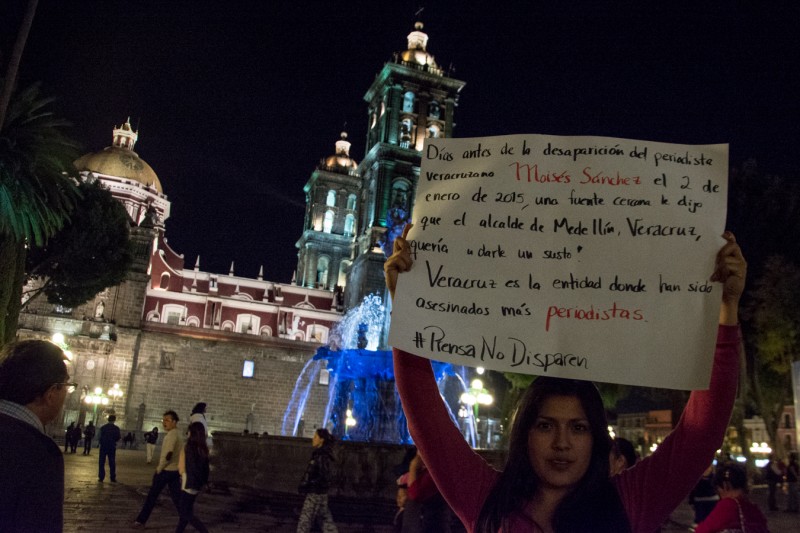 Días antes de la desaparición del periodista
veracruzano Moisés Sánchez el 2 de
enero de 2015, una fuente cercana le dijo
que el alcalde de Medellín, Veracruz,
quería "darle un susto"
Veracruz es la entidad donde han sido
asesinados más periodistas.
#Prensa No Disparen